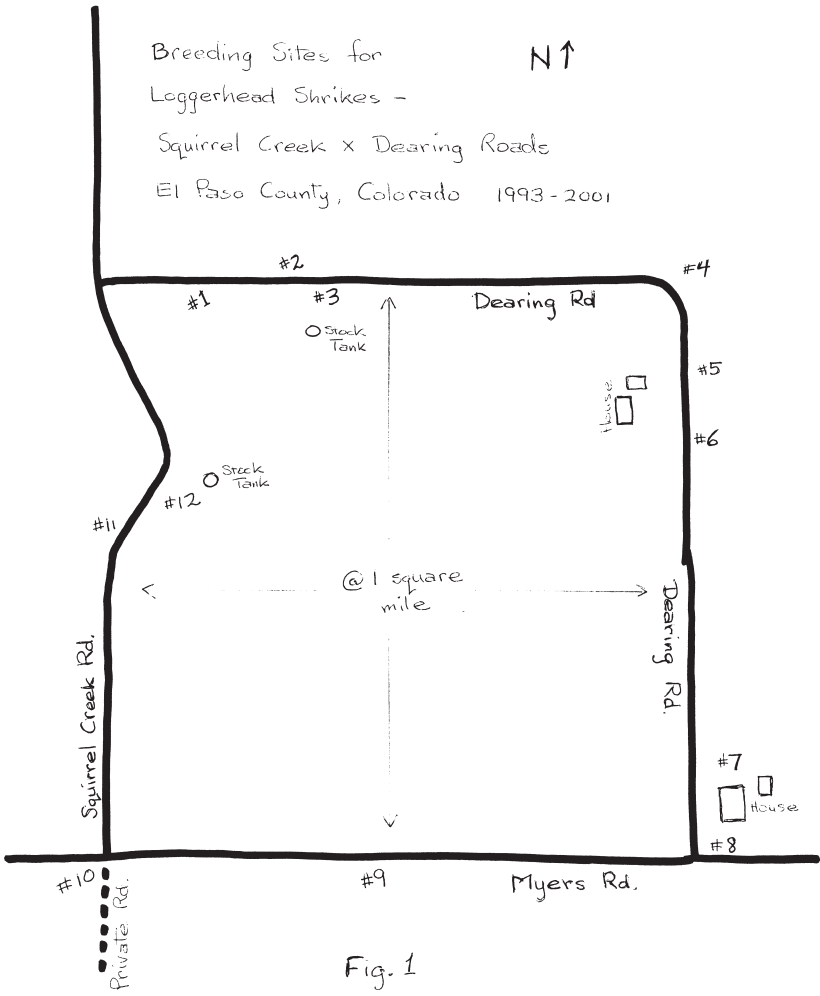 Breeding Sites for
N↑
Loggerhead Shrikes -
Squirrel Creek x Dearing Roads
El Paso County, Colorado 1993-2001
#2
#4
#1
#3
Dearing Rd
Stock
Tank
#5
House
#6
Stock
Tank
#12
#11
@ 1 square
mile
Dearing Rd.
Squirrel Creek Rd.
#7
House
#8
#10
#9
Myers Rd.
Private Rd.
Fig. 1